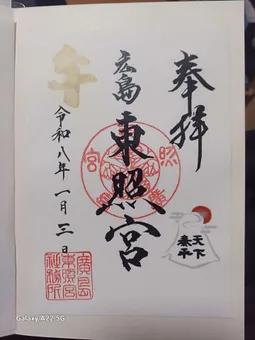 奉拝
広島
東照宮
午
令和八年一月三日
天下
泰平
廣島
東照宮
社務所
Galaxy A22 5G